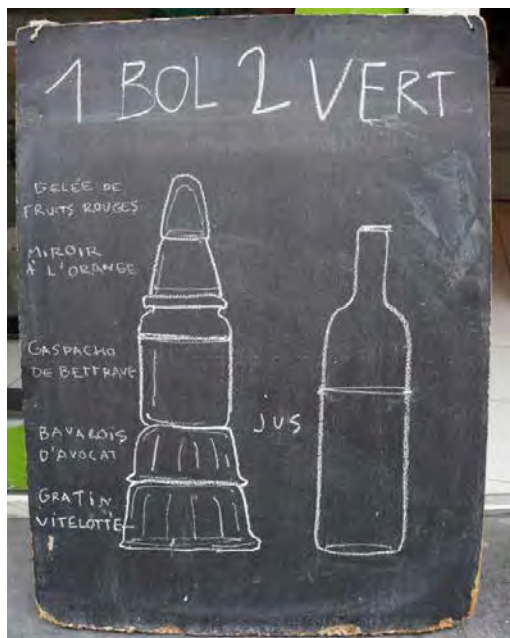 1 BOL 2 VERT
GELÉE DE
FRUITS ROUGES
MIROIR
À L'ORANGE
GASPACHO
DE BETTRAVE
BAVAROIS
D'AVOCAT
GRATIN
VITELOTTE
jus